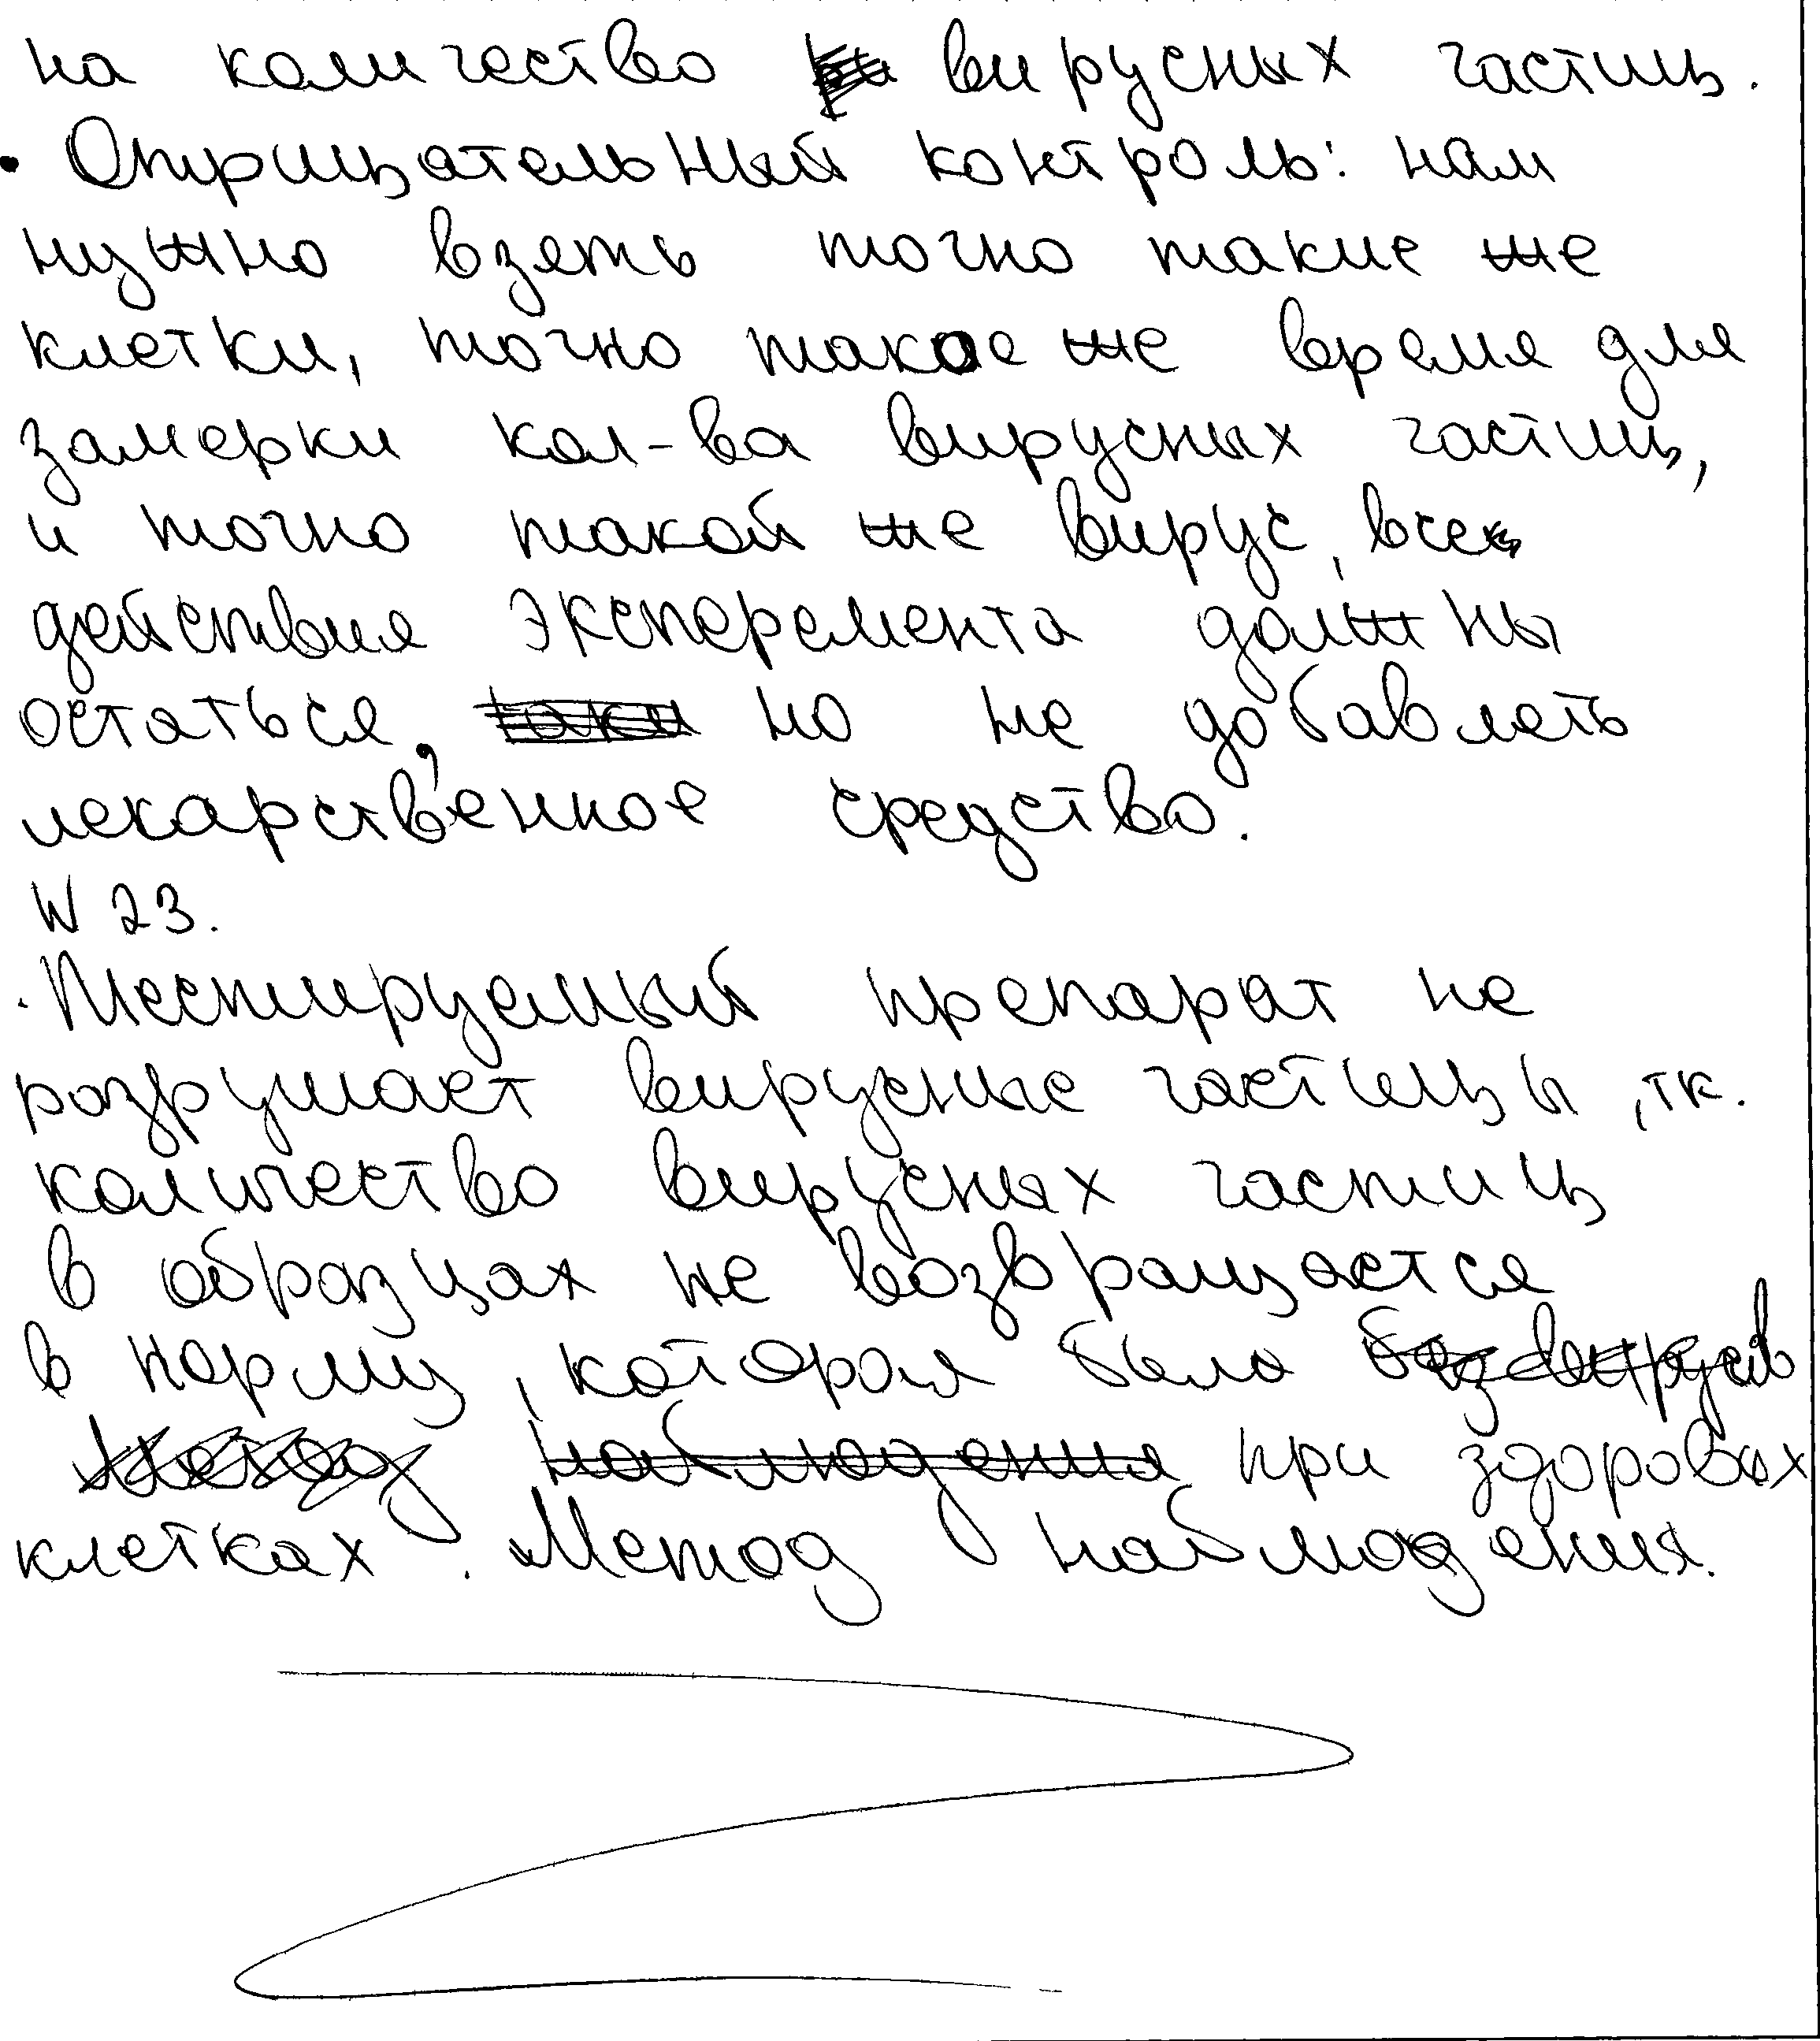 на количество вирусных частиц.
• Отрицательный контроль: нам
нужно взять точно такие же
клетки, точно такое же время для
замерки кол-ва вирусных частиц,
и точно такой же вирус, все
действия эксперемента должны
остаться, но не добавлять
лекарственное средство.
N 23.
. Тестируемый препарат не
разрушает вирусные частицы, тк.
количество вирусных частиц
в образцах не возвращается
в норму, которая была без вирусов
Метод наблюдения при здоровых
клетках. Метод наблюдения.